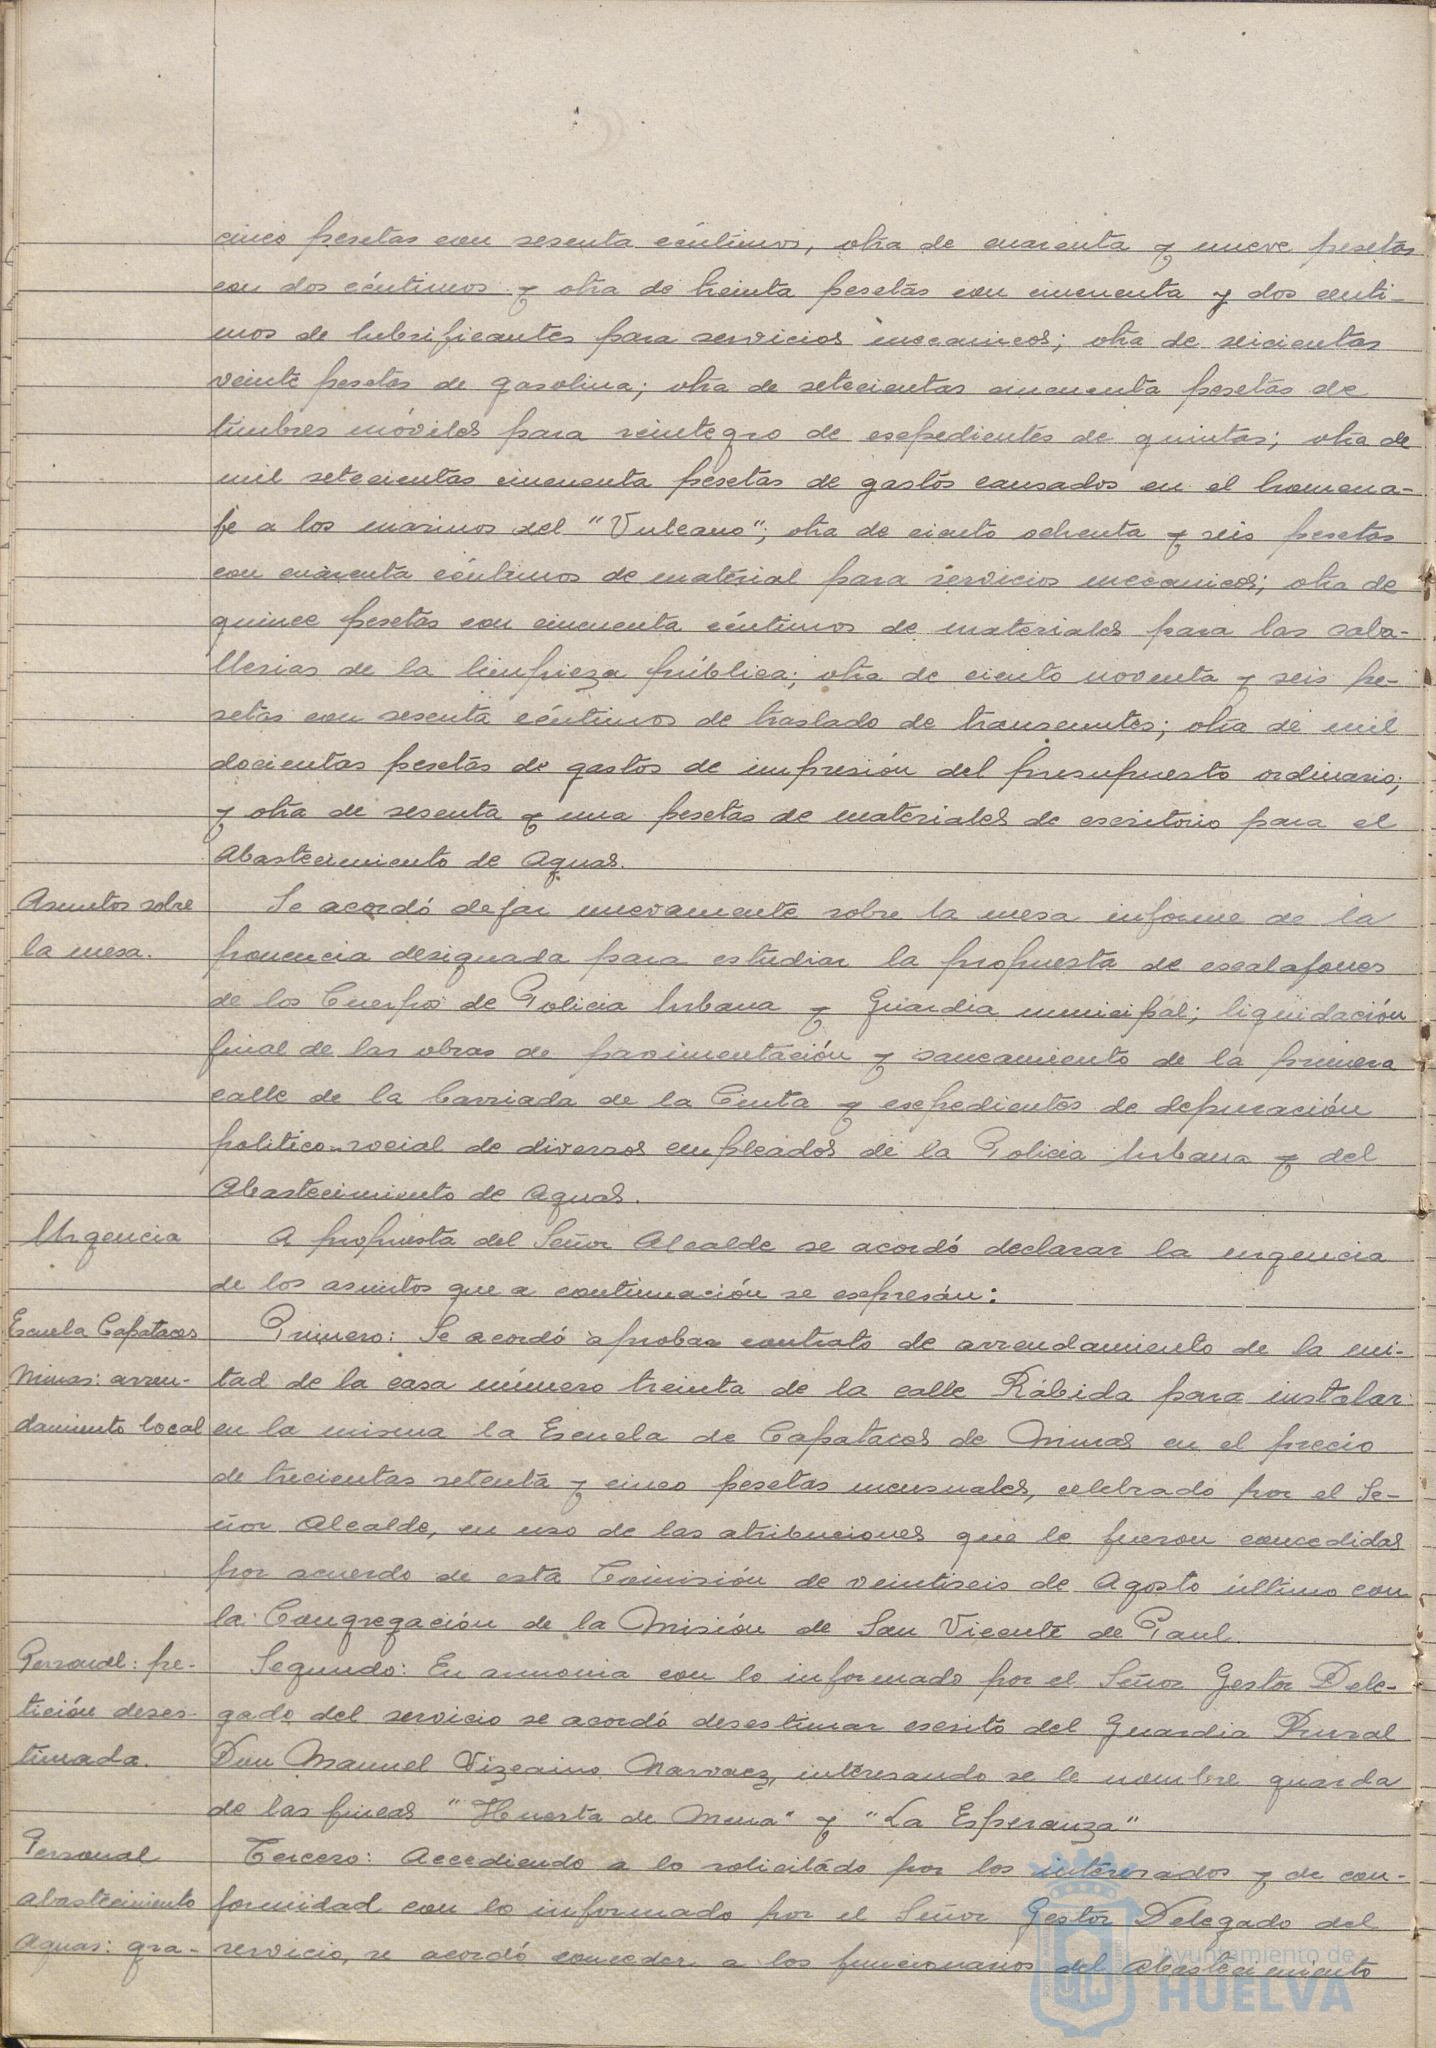 cinco pesetas con sesenta céntimos, otra de cuarenta y nueve pesetas
con dos céntimos y otra de treinta pesetas con cincuenta y dos centi-
mos de lubrificantes para servicios mecanicos; otra de seicientas
veinte pesetas de gasolina; otra de setecientas cincuenta pesetas de
timbres móviles para reintegro de esepedientes de quintas; otra de
mil setecientas cincuenta pesetas de gastos causados en el homena-
je a los marinos del "Vulcano"; otra de ciento ochenta y seis pesetas
con cuarenta céntimos de material para servicios mecanicos; otra de
quince pesetas con cincuenta céntimos de materiales para las caba-
llerias de la limpieza pública; otra de ciento noventa y seis pe-
setas con sesenta céntimos de traslado de transeuntes; otra de mil
docientas pesetas de gastos de impresión del presupuesto ordinario;
y otra de sesenta y una pesetas de materiales de escritorio para el
Abastecimiento de Aguas.
Asuntos sobre
la mesa.
Se acordó dejar nuevamente sobre la mesa informe de la
ponencia designada para estudiar la propuesta de escalafones
de los Cuerpos de Policia Urbana y Guardia municipal; liquidación
final de las obras de pavimentación y saneamiento de la primera
calle de la barriada de la Cinta y esepedientes de depuración
politico-social de diversos empleados de la Policia Urbana y del
Abastecimiento de Aguas.
Urgencia
A propuesta del Señor Alcalde se acordó declarar la urgencia
de los asuntos que a continuación se esepresan:
Escuela Capataces
Minas: arren-
damiento local
Primero: Se acordó aprobar contrato de arrendamiento de la mi-
tad de la casa número treinta de la calle Rábida para instalar
en la misma la Escuela de Capataces de Minas en el precio
de trecientas setenta y cinco pesetas mensuales, celebrado por el Se-
ñor Alcalde, en uso de las atribuciones que le fueron concedidas
por acuerdo de esta Comisión de veintiseis de Agosto último con
la Congregación de la Misión de San Vicente de Paul.
Personal: pe-
tición deses-
timada.
Segundo: En armonia con lo informado por el Señor Gestor Dele-
gado del servicio se acordó desestimar escrito del Guardia Rural
Don Manuel Vizcaino Narvaez, interesando se le nombre guarda
de las fincas "Huerta de Mena" y "La Esperanza"
Personal
abastecimiento
aguas: gra-
Tercero: Accediendo a lo solicitado por los interesados y de con-
formidad con lo informado por el Señor Gestor Delegado del
servicio, se acordó conceder a los funcionarios del Abastecimiento
Ayuntamiento de
HUELVA